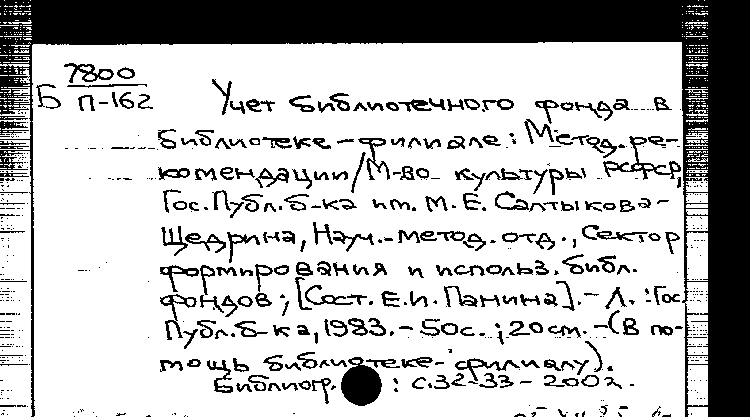 7800
Б П-162
Учет библиотечного фонда в
библиотеке-филиале: Метод. ре-
комендации/М-во культуры РСФСР,
Гос. Публ. б-ка им. М. Е. Салтыкова-
Щедрина, Науч.-метод. отд., Сектор
формирования и использ. библ.
фондов; [Сост. Е.И. Панина].- Л. : Гос.
Публ. б-ка, 1983.- 50с.; 20см. -(В по-
мощь библиотеке-филиалу).
Библиогр. : с.32-33 -